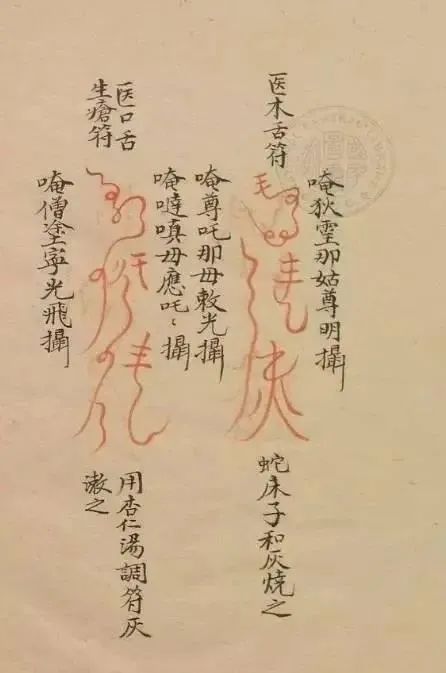 医木舌符
唵狄䨱那姑尊明攝
唵尊吒那毋敕光攝
蛇床子和灰燒之
医口舌
生瘡符
唵噠嗔毋應吒〻攝
唵僧塗寧光飛攝
用杏仁湯調符灰
漱之